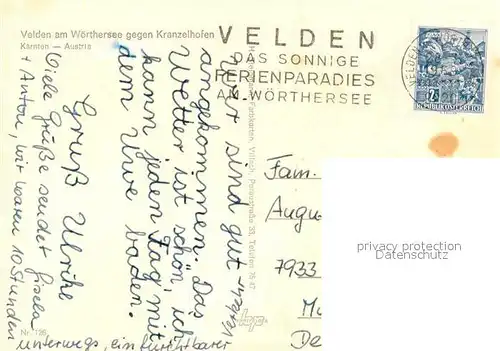 Velden am Wörthersee gegen Kranzelhofen
Kärnten — Austria
VELDEN
DAS SONNIGE
FERIENPARADIES
AM WÖRTHERSEE
REPUBLIK ÖSTERREICH
Wir sind gut
angekommen. Das
Wetter ist schön, ich
kann jeden Tag mit
dem Uwe baden.
Gruß Ulrike
Viele Grüße sendet Gisela
+ Anton, wir waren 10 Stunden
unterwegs, ein furchtbarer
Verkehr
Fam.
Augu
7933
Mu
De
Nr. 126
privacy protection
oldthing.de